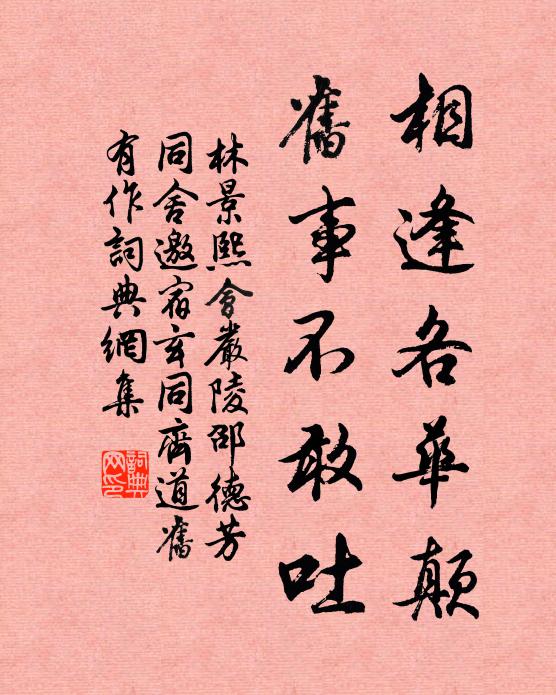 相逢各華顛
舊事不敢吐
林景熙會嚴陵邵德芳
同舍邀宿玄同齋道舊
有作詞典網集
詞典網印